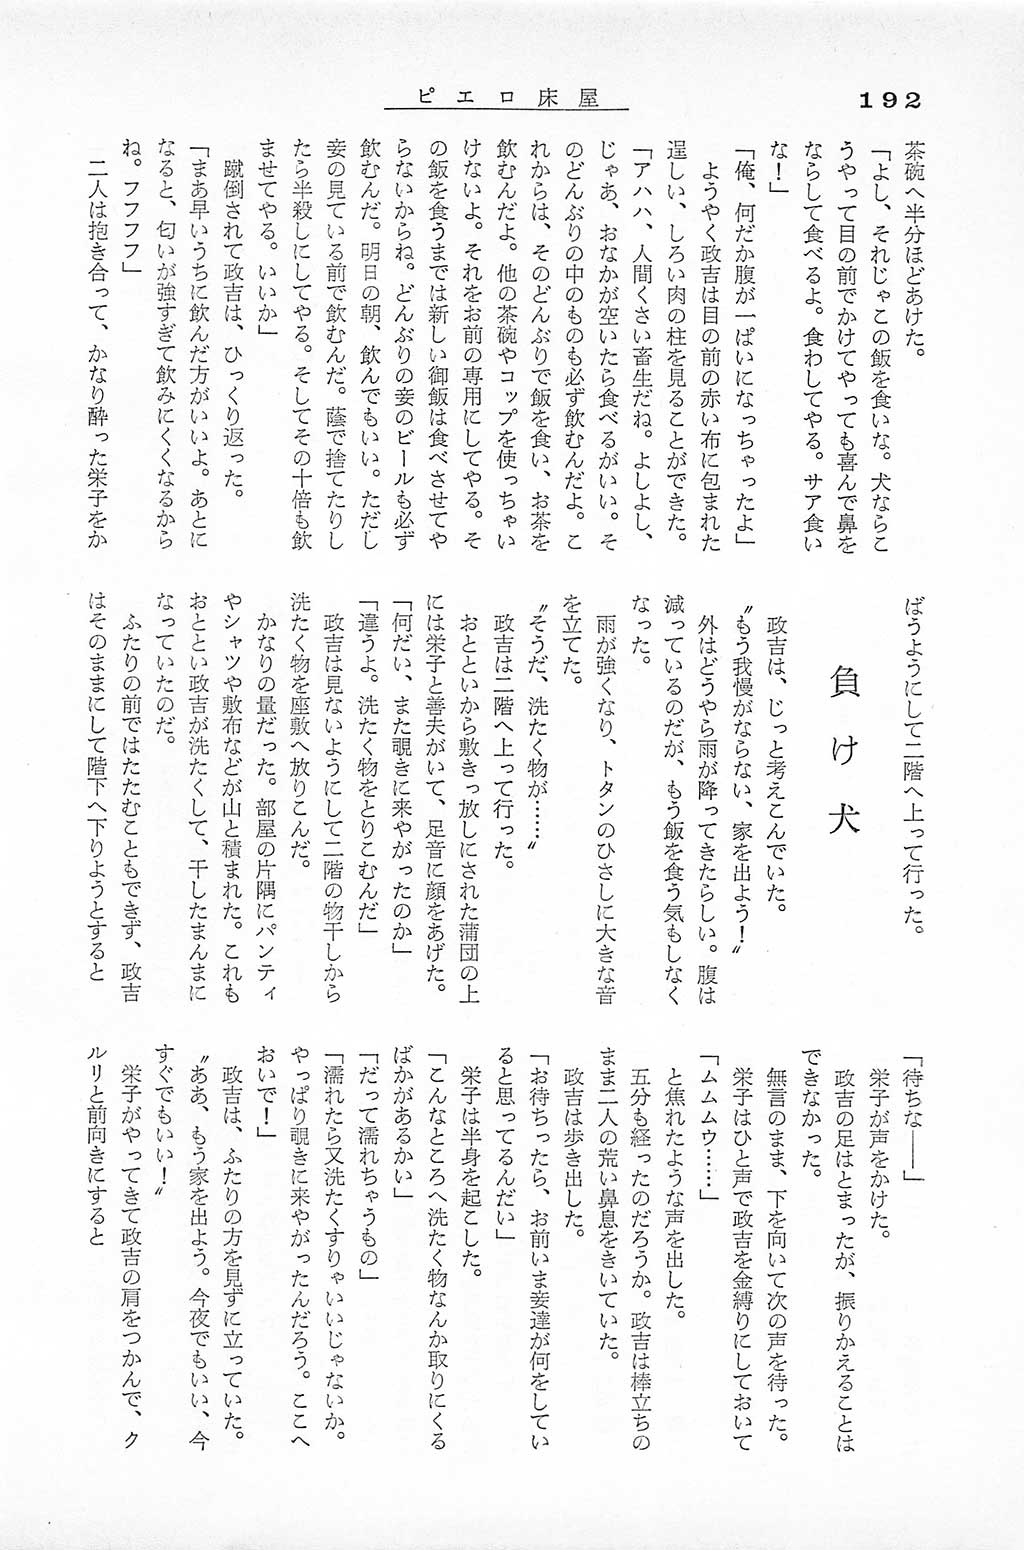 ピエロ床屋
192
茶碗へ半分ほどあけた。
「よし、それじゃこの飯を食いな。犬ならこ
うやって目の前でかけてやっても喜んで鼻を
ならして食べるよ。食わしてやる。サア食い
な！」
「俺、何だか腹が一ぱいになっちゃったよ」
ようやく政吉は目の前の赤い布に包まれた
逞しい、しろい肉の柱を見ることができた。
「アハハ、人間くさい畜生だね。よしよし、
じゃあ、おなかが空いたら食べるがいい。そ
のどんぶりの中のものも必ず飲むんだよ。こ
れからは、そのどんぶりで飯を食い、お茶を
飲むんだよ。他の茶碗やコップを使っちゃい
けないよ。それをお前の専用にしてやる。そ
の飯を食うまでは新しい御飯は食べさせてや
らないからね。どんぶりの妾のビールも必ず
飲むんだ。明日の朝、飲んでもいい。ただし
妾の見ている前で飲むんだ。蔭で捨てたりし
たら半殺しにしてやる。そしてその十倍も飲
ませてやる。いいか」
蹴倒されて政吉は、ひっくり返った。
「まあ早いうちに飲んだ方がいいよ。あとに
なると、匂いが強すぎて飲みにくくなるから
ね。フフフフ」
二人は抱き合って、かなり酔った栄子をか
ばうようにして二階へ上って行った。
負け犬
政吉は、じっと考えこんでいた。
〝もう我慢がならない、家を出よう！〟
外はどうやら雨が降ってきたらしい。腹は
減っているのだが、もう飯を食う気もしなく
なった。
雨が強くなり、トタンのひさしに大きな音
を立てた。
〝そうだ、洗たく物が……〟
政吉は二階へ上って行った。
おとといから敷きっ放しにされた蒲団の上
には栄子と善夫がいて、足音に顔をあげた。
「何だい、また覗きに来やがったのか」
「違うよ。洗たく物をとりこむんだ」
政吉は見ないようにして二階の物干しから
洗たく物を座敷へ放りこんだ。
かなりの量だった。部屋の片隅にパンティ
やシャツや敷布などが山と積まれた。これも
おととい政吉が洗たくして、干したまんまに
なっていたのだ。
ふたりの前ではたたむこともできず、政吉
はそのままにして階下へ下りようとすると
「待ちな――」
栄子が声をかけた。
政吉の足はとまったが、振りかえることは
できなかった。
無言のまま、下を向いて次の声を待った。
栄子はひと声で政吉を金縛りにしておいて
「ムムムウ……」
と焦れたような声を出した。
五分も経ったのだろうか。政吉は棒立ちの
まま二人の荒い鼻息をきいていた。
政吉は歩き出した。
「お待ちったら、お前いま妾達が何をしてい
ると思ってるんだい」
栄子は半身を起こした。
「こんなところへ洗たく物なんか取りにくる
ばかがあるかい」
「だって濡れちゃうもの」
「濡れたら又洗たくすりゃいいじゃないか。
やっぱり覗きに来やがったんだろう。ここへ
おいで！」
政吉は、ふたりの方を見ずに立っていた。
〝ああ、もう家を出よう。今夜でもいい、今
すぐでもいい！〟
栄子がやってきて政吉の肩をつかんで、ク
ルリと前向きにすると